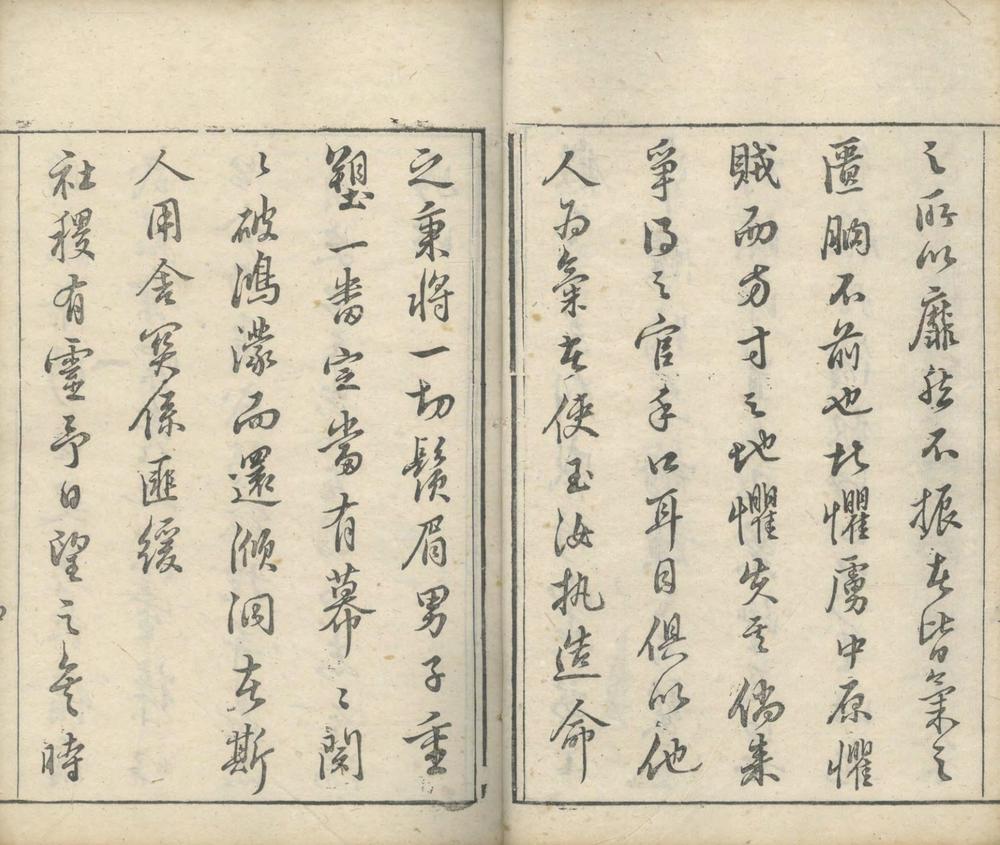 之所以靡然不振者皆氣之
匱胸不前也北懼虜中原懼
賊而方寸之地懼失其倘來
爭得之官手口耳目俱以他
人為氣者使玉汝執造命
之柬將一切鬚眉男子重
塑一番定當有幕〻闖
〻破鴻濛而還澒洞者斯
人用舍關係匪緩
社稷有靈予日望之矣時